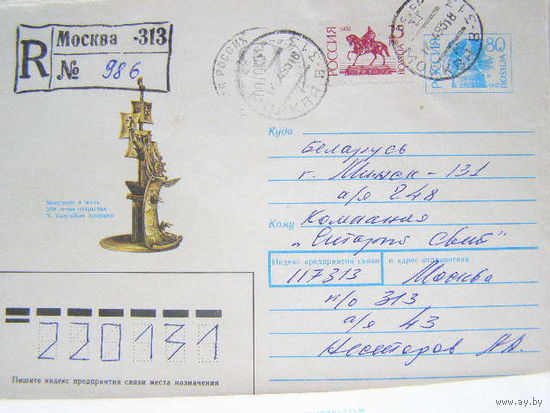 R Москва -313
№ 986
РОССИЯ
1992
РОССИЯ
ROSSIJA
80
РОССИЯ
ROSSIJA
МОСКВА
Монумент в честь
500-летия открытия
Х. Колумбом Америки
Куда Беларусь
г. Минск-131
а/я 248
Кому Компания
"Старый Свет"
Индекс предприятия связи и адрес отправителя
117313 Москва
п/о 313
а/я 43
Нестеров
220131
Пишите индекс предприятия связи места назначения
www.ay.by